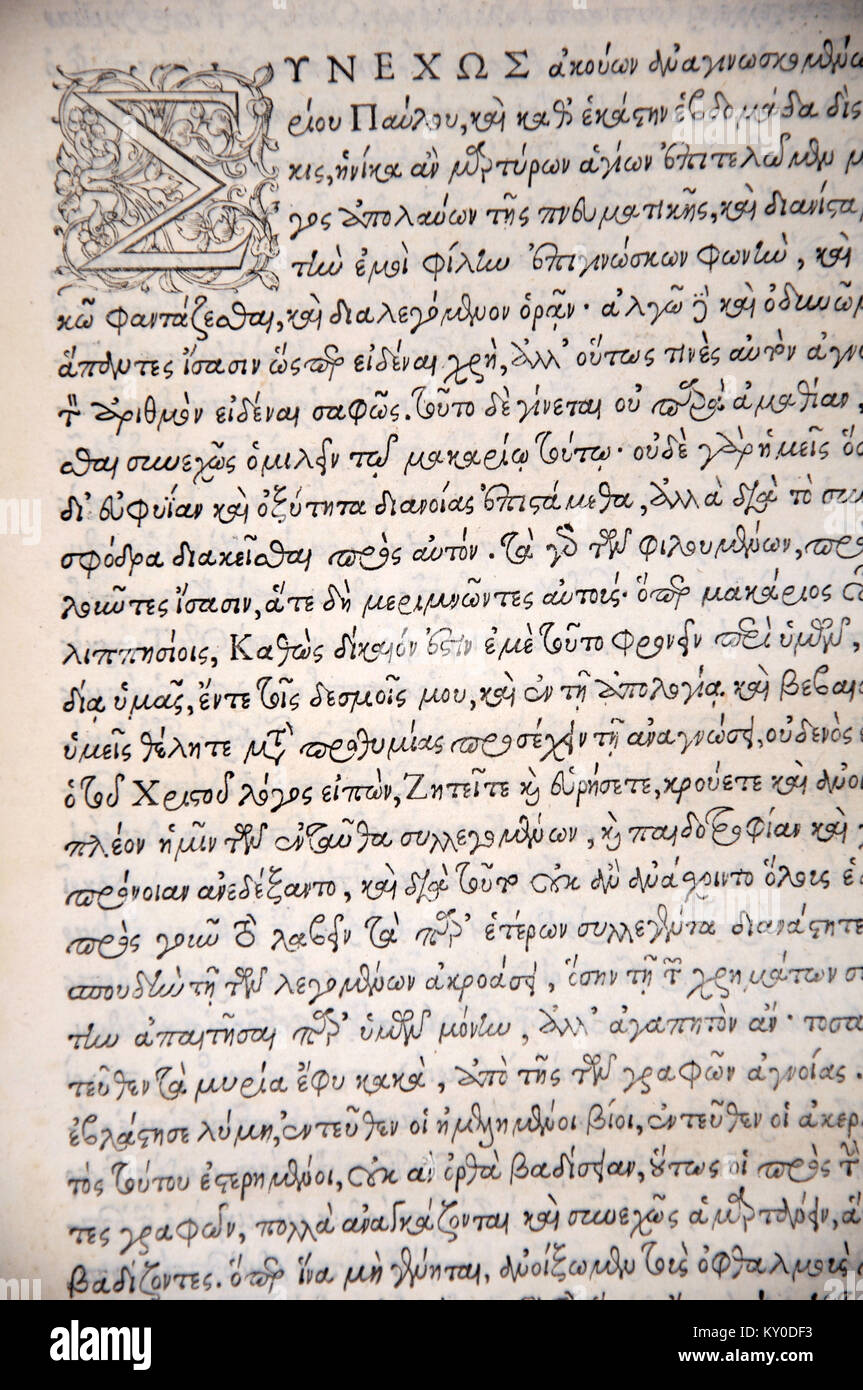 ΣΥΝΕΧΩΣ ἀκούων ἀναγινωσκομένων
ρίου Παύλου, καὶ καθ' ἑκάστην ἑβδομάδα δὶς
κις, ἡνίκα ἂν μαρτύρων ἁγίων ἐπιτελῶμεν μ
γος ἀπολαύων τῆς πνευματικῆς, καὶ διανίστα
τὴν ἐμοὶ φίλην ἐπιγινώσκων φωνὴν, καὶ
κῶ φαντάζεσθαι, καὶ διαλεγόμενον ὁρᾷν· ἀλγῶ δὲ καὶ ὀδυνῶμ
ἅπαντες ἴσασιν ὥσπερ εἰδέναι χρὴ, ἀλλ' οὕτως τινὲς αὐτὸν ἀγνο
τ ἀριθμὸν εἰδέναι σαφῶς. τοῦτο δὲ γίνεται οὐ παρὰ ἀμαθίαν,
σθαι συνεχῶς ὁμιλεῖν τῷ μακαρίῳ τούτῳ· οὐδὲ γὰρ ἡμεῖς ὅσ
δι' εὐφυΐαν καὶ ὀξύτητα διανοίας ἐπιστάμεθα, ἀλλὰ διὰ τὸ συν
σφόδρα διακεῖσθαι πρὸς αὐτόν. τὰ γὰρ τῶν φιλουμένων, πρὸ
λοιῶτες ἴσασιν, ἅτε δὴ μεριμνῶντες αὐτοίς· ὅπερ μακάριος
λιππησίοις, Καθὼς δίκαιόν ἐστιν ἐμὲ τοῦτο φρονεῖν περὶ ὑμῶν,
δίᾳ ὑμᾶς, ἔντε τοῖς δεσμοῖς μου, καὶ ἐν τῇ ἀπολογίᾳ καὶ βεβαι
ὑμεῖς θέλητε μετὰ προθυμίας προσέχειν τῇ ἀναγνώσει, οὐδενὸς
ὁ τοῦ Χριστοῦ λόγος εἰπὼν, Ζητεῖτε καὶ εὑρήσετε, κρούετε καὶ ἀνοι
πλέον ἡμῖν τῶν ἐνταῦθα συλλεγομένων, καὶ παιδοτροφίαν καὶ
πρόνοιαν ἀνεδέξαντο, καὶ διὰ τοῦτο οὐκ ἂν ἀνάχοιντο ὅλοις ἑ
πρὸς γοιῶ τὸ λαβεῖν τὰ παρ' ἑτέρων συλλεγέντα διανάστητε
σπουδὴν τῇ τῶν λεγομένων ἀκροάσει, ὅσην τῇ τῶν χρημάτων συ
τὴν ἀπαιτῆσαι παρ' ὑμῶν μόνην, ἀλλ' ἀγαπητὸν ἄν· τοσα
τεῦθεν τὰ μυρία ἔφυ κακὰ, ἀπὸ τῆς τῶν γραφῶν ἀγνοίας.
ἐβλάστησε λύμη, ἐντεῦθεν οἱ ἠμελημένοι βίοι, ἐντεῦθεν οἱ ἀκερ
τὸς τούτου ἐστερημένοι, οὐκ ἂν ὀρθὰ βαδίσειαν, οὕτως οἱ πρὸς τὴν
τες γραφῶν, πολλὰ ἀναγκάζονται καὶ συνεχῶς ἁμαρτάνειν, ἅ
βαδίζοντες. ὅπερ ἵνα μὴ γένηται, ἀνοίξωμεν τοὺς ὀφθαλμοὺς
alamy
Image ID: KY0DF3
www.alamy.com